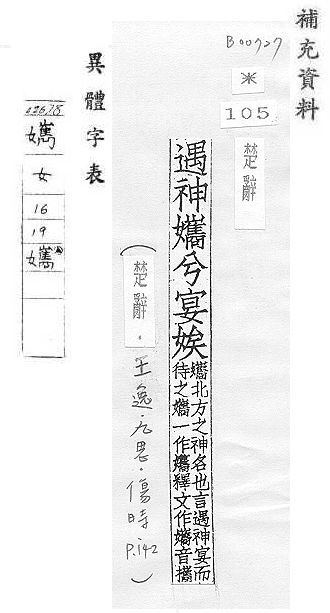 補充資料
B00727
※
105
楚辭
遇神孈兮宴娭
孈北方之神名也言遇神宴而
待之孈一作㒞釋文作孈音攜
(楚辭.王逸.九思.傷時 P.142)
異體字表
02678
女
16
19